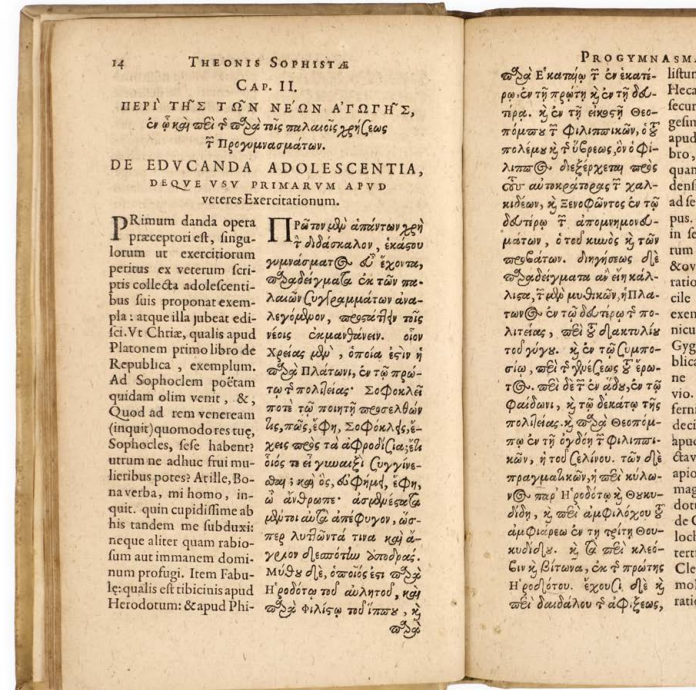 14 THEONIS SOPHISTÆ
CAP. II.
ΠΕΡΙ ΤΗ͂Σ ΤΩ͂Ν ΝΕ΄ΩΝ ἈΓΩΓΗ͂Σ,
ἐν ᾧ καὶ περὶ τ παρὰ τοῖς παλαιοῖς χρήσεως
τ Προγυμνασμάτων.
DE EDVCANDA ADOLESCENTIA,
DEQVE VSV PRIMARVM APVD
veteres Exercitationum.
PRimum danda opera
præceptori est, singu-
lorum ut exercitiorum
peritus ex veterum scri-
ptis collecta adolescenti-
bus suis proponat exem-
pla: atque illa jubeat edi-
sci. Vt Chriæ, qualis apud
Platonem primo libro de
Republica, exemplum.
Ad Sophoclem poëtam
quidam olim venit, &,
Quod ad rem veneream
(inquit) quomodo res tuę,
Sophocles, sese habent?
utrum ne adhuc frui mu-
lieribus potes? At ille, Bo-
na verba, mi homo, in-
quit. quin cupidissime ab
his tandem me subduxi:
neque aliter quam rabio-
sum aut immanem domi-
num profugi. Item Fabu-
lę: qualis est tibicinis apud
Herodotum: & apud Phi-
Πρῶτον μὲν ἁπάντων χρὴ
τ διδάσκαλον, ἑκάστου
γυμνάσματος εὖ ἔχοντα,
παραδείγματα ἐκ τῶν πα-
λαιῶν συγγραμμάτων ἀνα-
λεγόμενον, προστάττειν τοῖς
νέοις ἐκμανθάνειν. οἷον
Χρείας μὲν, ὁποία ἐστὶν ἡ
παρὰ Πλάτωνι, ἐν τῷ πρώ-
τῳ τ πολιτείας· Σοφοκλεῖ
ποτὲ τῷ ποιητῇ προσελθών
τις, πῶς, ἔφη, Σοφόκλης, ἔ-
χεις πρὸς τὰ ἀφροδίσια; ἔτι
οἷός τε εἶ γυναιξὶ συγγίνε-
σθαι; καὶ ὃς, εὐφήμει, ἔφη,
ὦ ἄνθρωπε· ἀσμένεστατα
μέντοι αὐτὰ ἀπέφυγον, ὥσ-
περ λυττῶντά τινα καὶ ἄ-
γριον δεσπότην ἀποδράς.
Μύθου δὲ, ὁποῖός ἐστι παρὰ
Ἡροδότῳ τοῦ αὐλητοῦ, καὶ
παρὰ Φιλίστῳ τοῦ ἵππου, κ
παρὰ
PROGYMNASMA
παρὰ Ἑκαταίῳ τ ἐν ἑκατέ-
ρῳ. ἐν τῇ πρώτῃ κ ἐν τῇ δευ-
τέρᾳ. κ ἐν τῇ εἰκοστῇ Θεο-
πόμπου τ Φιλιππικῶν, ὁ τοῦ
πολέμου κ τ ὕβρεως, ὃν ὁ Φί-
λιππος διεξέρχεται πρὸς
τοὺς αὐτοκράτορας τ χαλ-
κιδέων, κ Ξενοφῶντος ἐν τῷ
δευτέρῳ τ ἀπομνημονευ-
μάτων, ὁ τοῦ κυνὸς κ τῶν
προβάτων. διηγήσεως δὲ
παραδείγματα ἂν εἴη κάλ-
λιστα, τ μὲν μυθικῶν, ἡ Πλά-
τωνος ἐν τῷ δευτέρῳ τ πο-
λιτείας, περὶ τοῦ δακτυλίου
τοῦ γύγου. κ ἐν τῷ Συμπο-
σίῳ, περὶ τ γενέσεως τοῦ ἔρω-
τος. περὶ δὲ τ ἐν ᾅδου, ἐν τῷ
Φαίδωνι, κ τῷ δεκάτῳ τῆς
πολιτείας. κ παρὰ Θεοπόμ-
πῳ ἐν τῇ ὀγδόῃ τ Φιλιππι-
κῶν, ἡ τοῦ Σελίνου. τῶν δὲ
πραγματικῶν, ἡ περὶ κύλω-
νος παρ' Ἡροδότῳ κ Θουκυ-
δίδῃ, κ περὶ ἀμφιλόχου τοῦ
ἀμφιάρεω ἐν τῇ τρίτῃ Θου-
κυδίδου. κ τὰ περὶ κλέο-
βιν κ βίτωνα, ἐκ τ πρώτης
Ἡροδότου. ἔχουσι δὲ κ
περὶ δαιδάλου τ ἀφίξεως,
listum
Heca
secun
gesim
apud
bro,
quam
dens
ad se
pus.
in se
rum
&ov
ratio
cile
exen
nicu
Gyg
blica
ne
vio.
fern
deci
apud
ctav
apio
mag
dotu
de C
loch
terti
Cle
mol
ratio